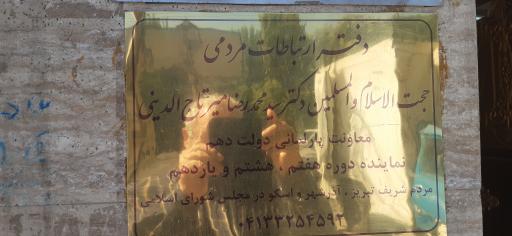 دفتر ارتباطات مردمی
حجت الاسلام والمسلمین دکتر سید محمدرضا میرتاج الدینی
معاونت پارلمانی دولت دهم
نماینده دوره هفتم ، هشتم و یازدهم
مردم شریف تبریز ، آذرشهر و اسکو در مجلس شورای اسلامی
۰۴۱۳۳۲۵۴۵۹۲